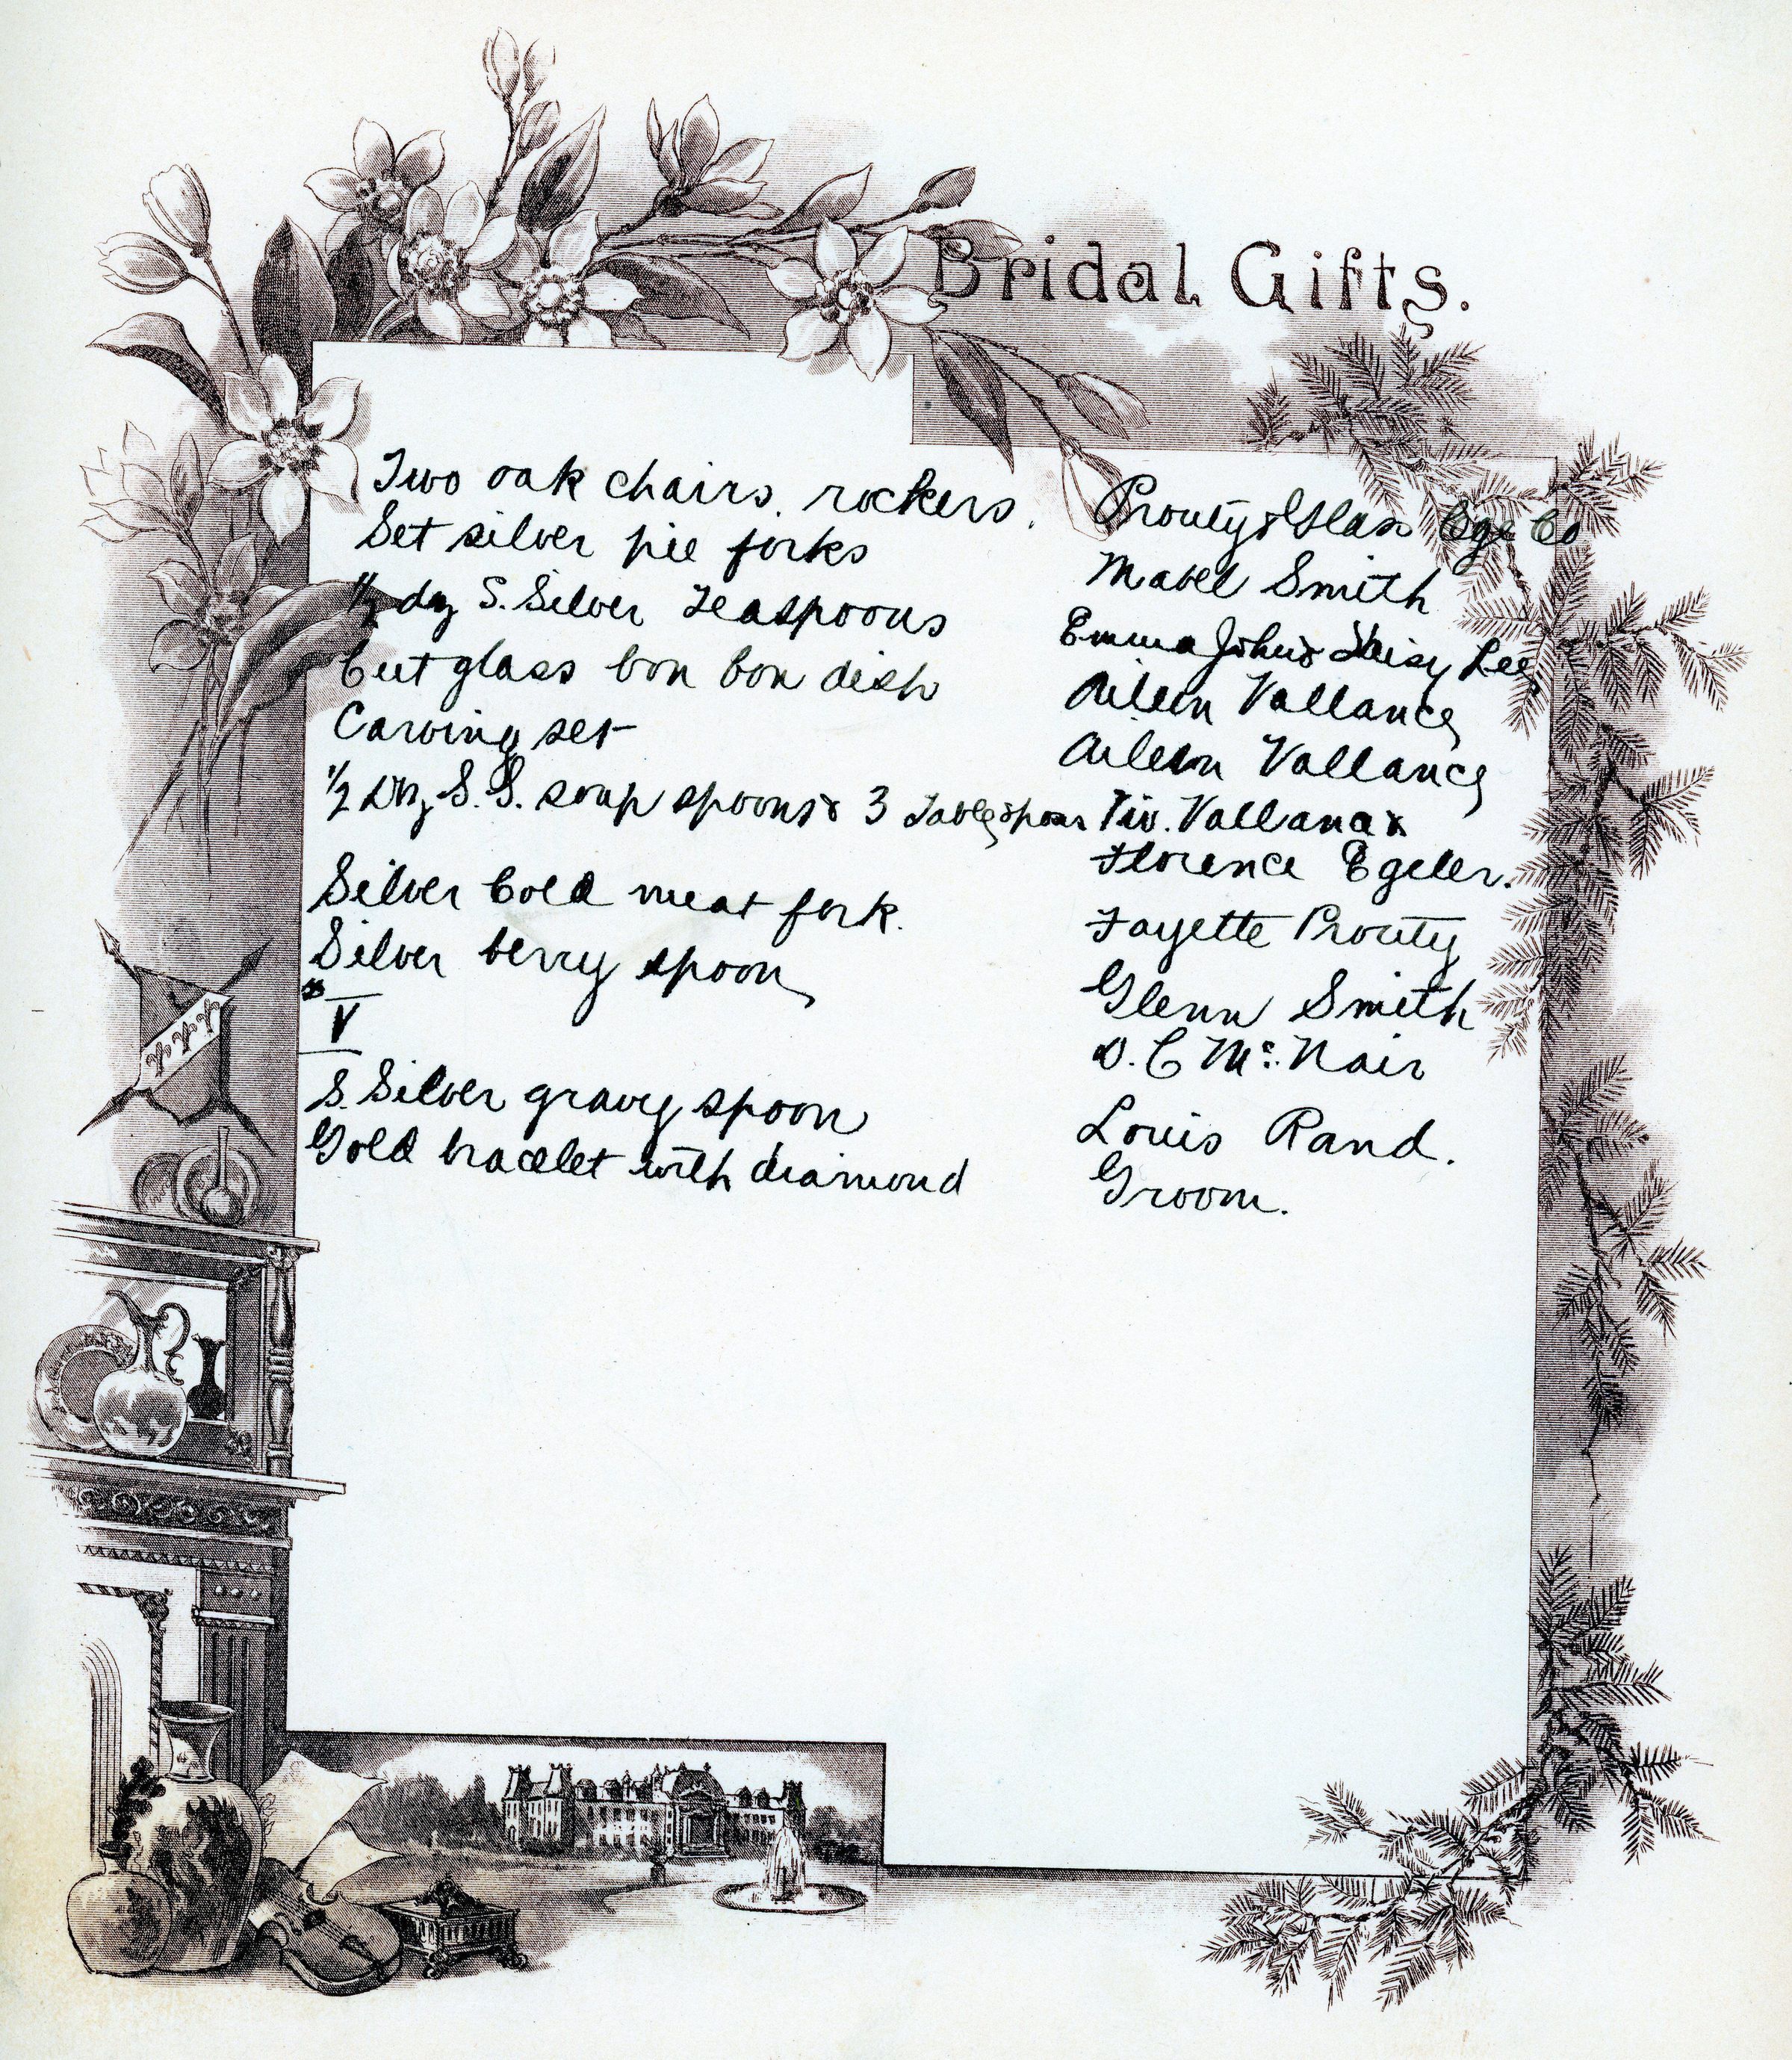 Bridal Gifts.
Two oak chairs, rockers. Prouty & Glass Cge Co
Set silver pie forks Mabel Smith
1/2 dz S. Silver Teaspoons Emma John & Daisy Lee
Cut glass bon bon dish Aileen Vallance
Carving set Aileen Vallance
1/2 Doz S.S. soup spoons & 3 Tablespoons Tiv. Vallance &
Florence Egeler.
Silver Cold meat fork. Fayette Prouty
Silver berry spoon Glenn Smith
$ V D. C Mc. Nair
S. Silver gravy spoon Louis Rand.
Gold bracelet with diamond Groom.